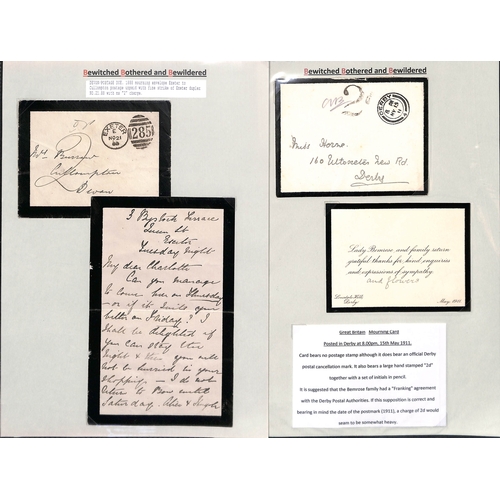 Bewitched Bothered and Bewildered
EXETER
E
NO 21
88
285
Devon
3
Terrace
Queen St
Exeter
Tuesday Night
My dear Charlotte
Can you manage
to come here on Thursday
or if it suits you
better on Friday? I
shall be delighted if
you can stay the
night & then you will
not be hurried in your
shopping – I do not
return to Bow until
Saturday.
Bewitched Bothered and Bewildered
2d
DERBY
8 PM
MY 15
11
Miss Horne.
160 Uttoxeter New Rd.
Derby
Lady Bemrose, and family return
grateful thanks for kind enquiries
and expressions of sympathy.
and flowers
Derby
May, 1911
Great Britain Mourning Card
Posted in Derby at 8.00pm, 15th May 1911.
Card bears no postage stamp although it does bear an official Derby
postal cancellation mark. It also bears a large hand stamped "2d"
together with a set of initials in pencil.
It is suggested that the Bemrose family had a "Franking" agreement
with the Derby Postal Authorities. If this supposition is correct and
bearing in mind the date of the postmark (1911), a charge of 2d would
seam to be somewhat heavy.